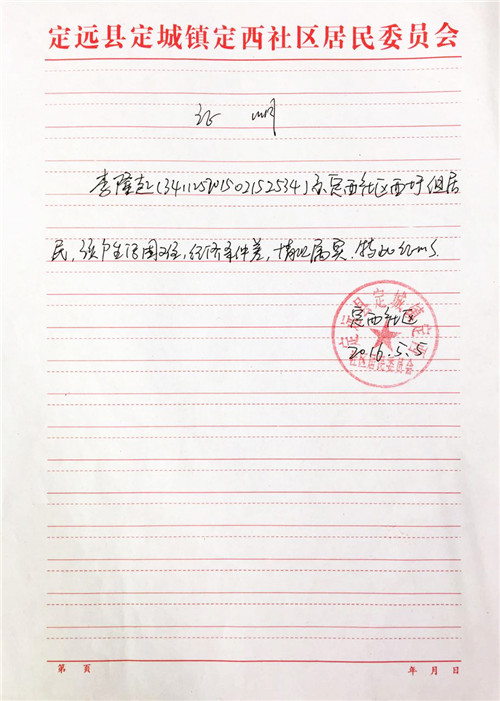 定远县定城镇定西社区居民委员会
证 明
李隆起(341125201502152534)系定西社区西圩组居
民,该户生活困难,经济条件差,情况属实.特此证明.
定西社区
2016.5.5
定远县定城镇定西
社区居民委员会
第 页
年 月 日